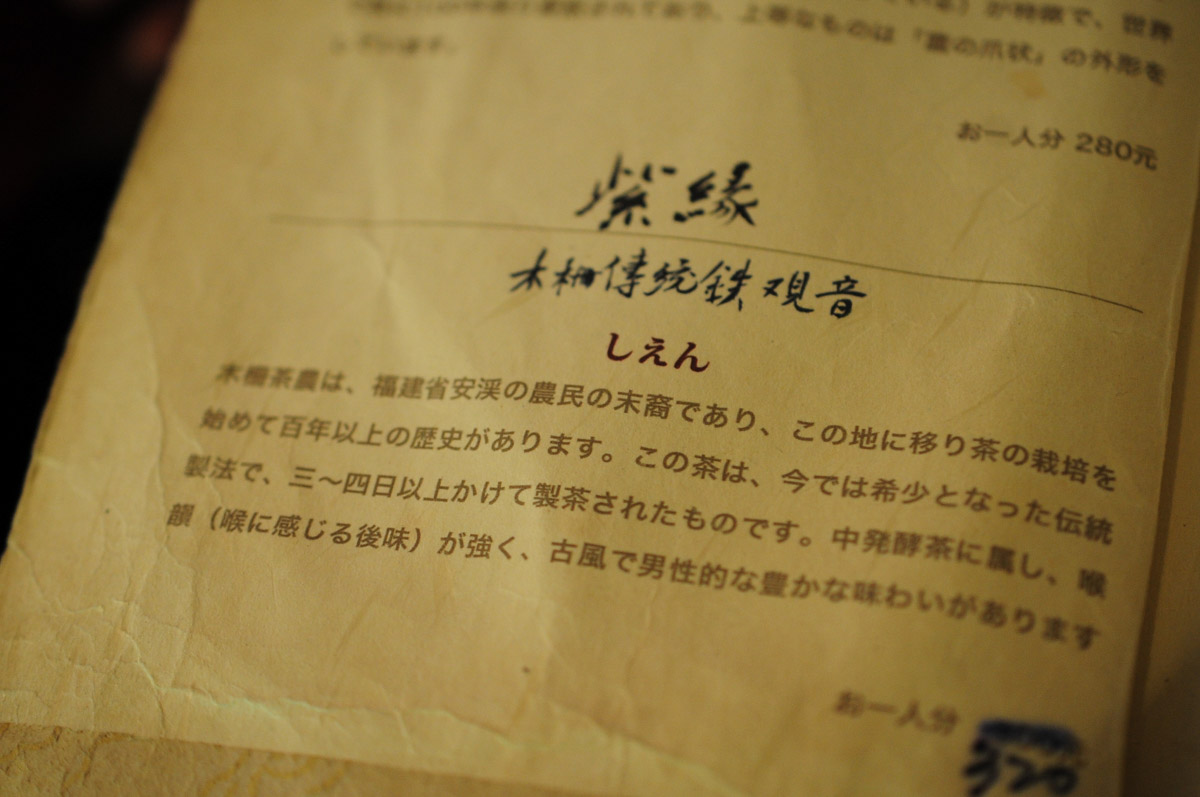 が特徴で、世界
上等なものは「鷹の爪状」の外形を
しています。
お一人分 280元
紫緣
木柵傳統鉄观音
しえん
木柵茶農は、福建省安渓の農民の末裔であり、この地に移り茶の栽培を
始めて百年以上の歴史があります。この茶は、今では希少となった伝統
製法で、三〜四日以上かけて製茶されたものです。中発酵茶に属し、喉
韻（喉に感じる後味）が強く、古風で男性的な豊かな味わいがあります
お一人分
320